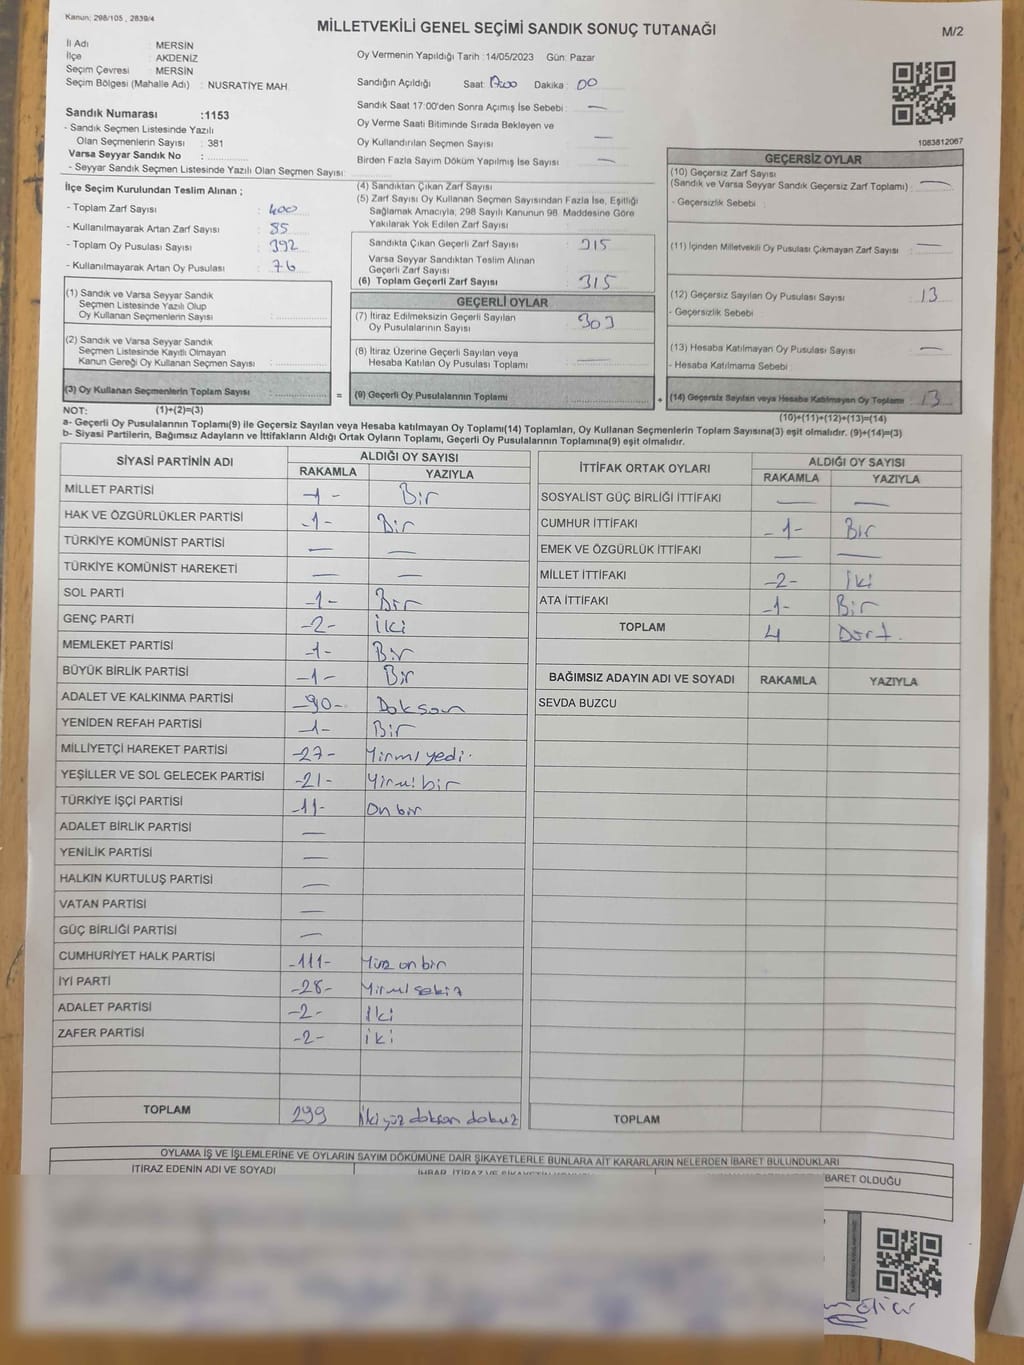 Kanun: 298/105 , 2839/4
MİLLETVEKİLİ GENEL SEÇİMİ SANDIK SONUÇ TUTANAĞI
M/2
İl Adı : MERSİN
İlçe : AKDENİZ
Seçim Çevresi : MERSİN
Seçim Bölgesi (Mahalle Adı) : NUSRATİYE MAH.
Sandık Numarası :1153
- Sandık Seçmen Listesinde Yazılı
Olan Seçmenlerin Sayısı : 381
Varsa Seyyar Sandık No :
- Seyyar Sandık Seçmen Listesinde Yazılı Olan Seçmen Sayısı:
Oy Vermenin Yapıldığı Tarih :14/05/2023 Gün: Pazar
Sandığın Açıldığı Saat: 17:00 Dakika : 00
Sandık Saat 17:00'den Sonra Açımış İse Sebebi : —
Oy Verme Saati Bitiminde Sırada Bekleyen ve
Oy Kullandırılan Seçmen Sayısı —
Birden Fazla Sayım Döküm Yapılmış İse Sayısı : —
1083812067
İlçe Seçim Kurulundan Teslim Alınan ;
- Toplam Zarf Sayısı : 400
- Kullanılmayarak Artan Zarf Sayısı : 85
- Toplam Oy Pusulası Sayısı : 392
- Kullanılmayarak Artan Oy Pusulası : 76
(1) Sandık ve Varsa Seyyar Sandık
Seçmen Listesinde Yazılı Olup
Oy Kullanan Seçmenlerin Sayısı :
(2) Sandık ve Varsa Seyyar Sandık
Seçmen Listesinde Kayıtlı Olmayan
Kanun Gereği Oy Kullanan Seçmen Sayısı :
(3) Oy Kullanan Seçmenlerin Toplam Sayısı :
(4) Sandıktan Çıkan Zarf Sayısı :
(5) Zarf Sayısı Oy Kullanan Seçmen Sayısından Fazla İse, Eşitliği
Sağlamak Amacıyla, 298 Sayılı Kanunun 98. Maddesine Göre
Yakılarak Yok Edilen Zarf Sayısı :
Sandıkta Çıkan Geçerli Zarf Sayısı : 315
Varsa Seyyar Sandıktan Teslim Alınan
Geçerli Zarf Sayısı :
(6) Toplam Geçerli Zarf Sayısı : 315
GEÇERLİ OYLAR
(7) İtiraz Edilmeksizin Geçerli Sayılan
Oy Pusulalarının Sayısı : 303
(8) İtiraz Üzerine Geçerli Sayılan veya
Hesaba Katılan Oy Pusulası Toplamı :
= (9) Geçerli Oy Pusulalarının Toplamı :
GEÇERSİZ OYLAR
(10) Geçersiz Zarf Sayısı
(Sandık ve Varsa Seyyar Sandık Geçersiz Zarf Toplamı) : —
- Geçersizlik Sebebi :
(11) İçinden Milletvekili Oy Pusulası Çıkmayan Zarf Sayısı : —
(12) Geçersiz Sayılan Oy Pusulası Sayısı : 13
- Geçersizlik Sebebi :
(13) Hesaba Katılmayan Oy Pusulası Sayısı : —
- Hesaba Katılmama Sebebi :
+ (14) Geçersiz Sayılan veya Hesaba Katılmayan Oy Toplamı : 13
NOT: (1)+(2)=(3)
(10)+(11)+(12)+(13)=(14)
a- Geçerli Oy Pusulalarının Toplamı(9) ile Geçersiz Sayılan veya Hesaba katılmayan Oy Toplamı(14) Toplamları, Oy Kullanan Seçmenlerin Toplam Sayısına(3) eşit olmalıdır. (9)+(14)=(3)
b- Siyasi Partilerin, Bağımsız Adayların ve İttifakların Aldığı Ortak Oyların Toplamı, Geçerli Oy Pusulalarının Toplamına(9) eşit olmalıdır.
SİYASİ PARTİNİN ADI ALDIĞI OY SAYISI
RAKAMLA YAZIYLA
MİLLET PARTİSİ -1- Bir
HAK VE ÖZGÜRLÜKLER PARTİSİ -1- Bir
TÜRKİYE KOMÜNİST PARTİSİ — —
TÜRKİYE KOMÜNİST HAREKETİ — —
SOL PARTİ -1- Bir
GENÇ PARTİ -2- İki
MEMLEKET PARTİSİ -1- Bir
BÜYÜK BİRLİK PARTİSİ -1- Bir
ADALET VE KALKINMA PARTİSİ -90- Doksan
YENİDEN REFAH PARTİSİ -1- Bir
MİLLİYETÇİ HAREKET PARTİSİ -27- Yirmi yedi.
YEŞİLLER VE SOL GELECEK PARTİSİ -21- Yirmi bir
TÜRKİYE İŞÇİ PARTİSİ -11- On bir
ADALET BİRLİK PARTİSİ —
YENİLİK PARTİSİ —
HALKIN KURTULUŞ PARTİSİ —
VATAN PARTİSİ —
GÜÇ BİRLİĞİ PARTİSİ —
CUMHURİYET HALK PARTİSİ -111- Yüz on bir
İYİ PARTİ -28- Yirmi sekiz
ADALET PARTİSİ -2- İki
ZAFER PARTİSİ -2- iki
TOPLAM 299 İki yüz doksan dokuz
İTTİFAK ORTAK OYLARI ALDIĞI OY SAYISI
RAKAMLA YAZIYLA
SOSYALİST GÜÇ BİRLİĞİ İTTİFAKI — —
CUMHUR İTTİFAKI -1- Bir
EMEK VE ÖZGÜRLÜK İTTİFAKI — —
MİLLET İTTİFAKI -2- İki
ATA İTTİFAKI -1- Bir
TOPLAM 4 Dört.
BAĞIMSIZ ADAYIN ADI VE SOYADI RAKAMLA YAZIYLA
SEVDA BUZCU
TOPLAM
OYLAMA İŞ VE İŞLEMLERİNE VE OYLARIN SAYIM DÖKÜMÜNE DAİR ŞİKAYETLERLE BUNLARA AİT KARARLARIN NELERDEN İBARET BULUNDUKLARI
İTİRAZ EDENİN ADI VE SOYADI
BARET OLDUĞU